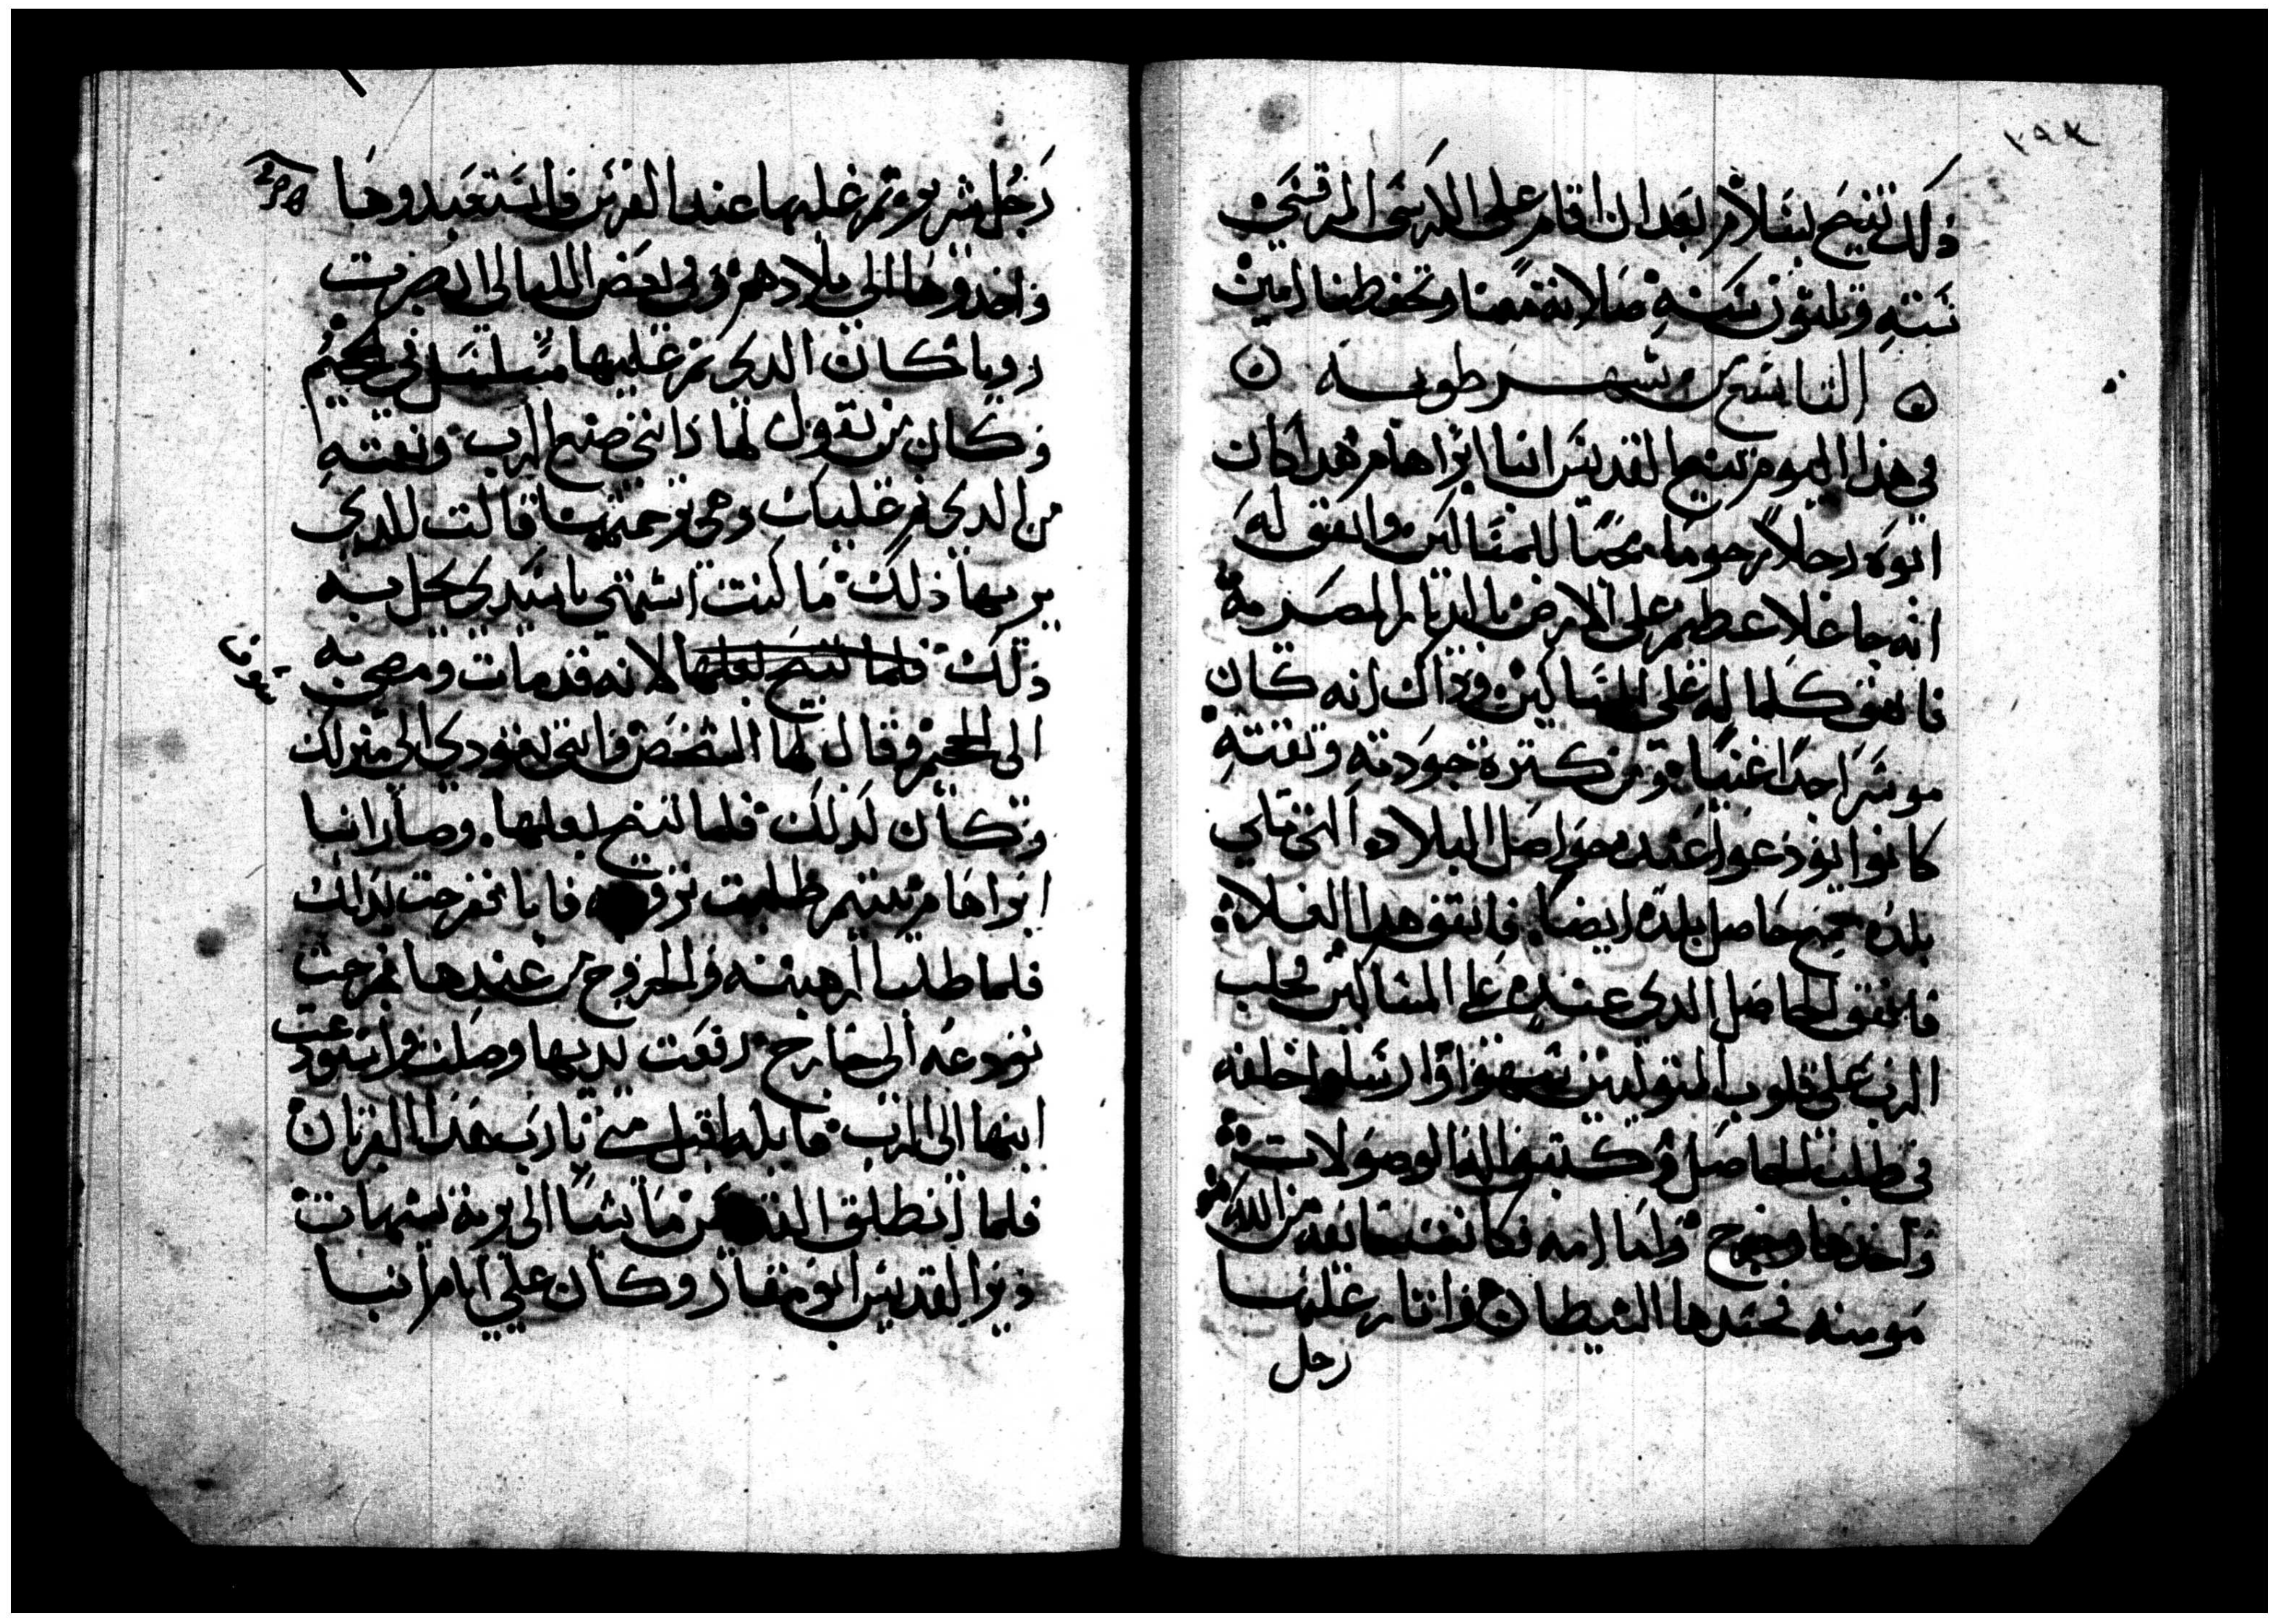 ١٩٧
ذلك تنيح بسلام بعد ان اقام على الكرسى المرقسى
سته وثلثون سنه صلاته معنا وتحفظنا امين
التاسع من شهر طوبه
فى هذا اليوم تنيح القديس انبا ابراهام هدا كان
ابوه رجلا رحوما محبا للمساكين واتفق له
انه جا غلا عظيم على الارض بالديار المصريه
فانفق كلما له على المساكين وذاك انه كان
موسرا جدا غنيا ومن كترة جودته وتقته
كانوا يودعوا عنده حواصل البلاد التى تلي
بلده حاصل بلده ايضا فاتفق هدا الغلا
فانفق الحاصل الدى عنده على المساكين فجلب
الرب على قلوب المتوليين وارسلوا خلفه
فى طلب الحاصل وكتبوا الوصولات
واخدها وخرج واما امه فكانت خايفه من الله
مومنه فحسدها الشيطان واثار عليها
رجل
رجل شرير غمز عليها عند الفرس فاستعبدوها
واخدوها الى بلادهم وفى بعض الليالى ابصرت
رويا كان الدي غمز عليها مسلسل فى جحيم
وكان من يقول لها دا انتى صنع الرب ونقمته
من الدى غمز عليك وهى ترحمت قالت للدي
يريها ذلك ما كنت اشتهى يا سيدى يحل به
ذلك فلما تنيح بعلها لانه قد مات ومضى به
سوف
الى الجحيم وقال لها الشخص وانتى تعودي الى منزلك
وكان كذلك فلما تنيح بعلها وصار انبا
ابراهام يتيم طلبت تزوجه فابا ففرحت بذلك
فلما طلب الرهبنه والخروج من عندها خرجت
تودعه الى خارج رفعت يديها وصلت واستودعت
ابنها الى الرب قايله اقبل منى يا رب هدا القربان
فلما انطلق القديس ماشيا الى برية شيهات
دير القديس ابو مقار وكان علي ايام انبا